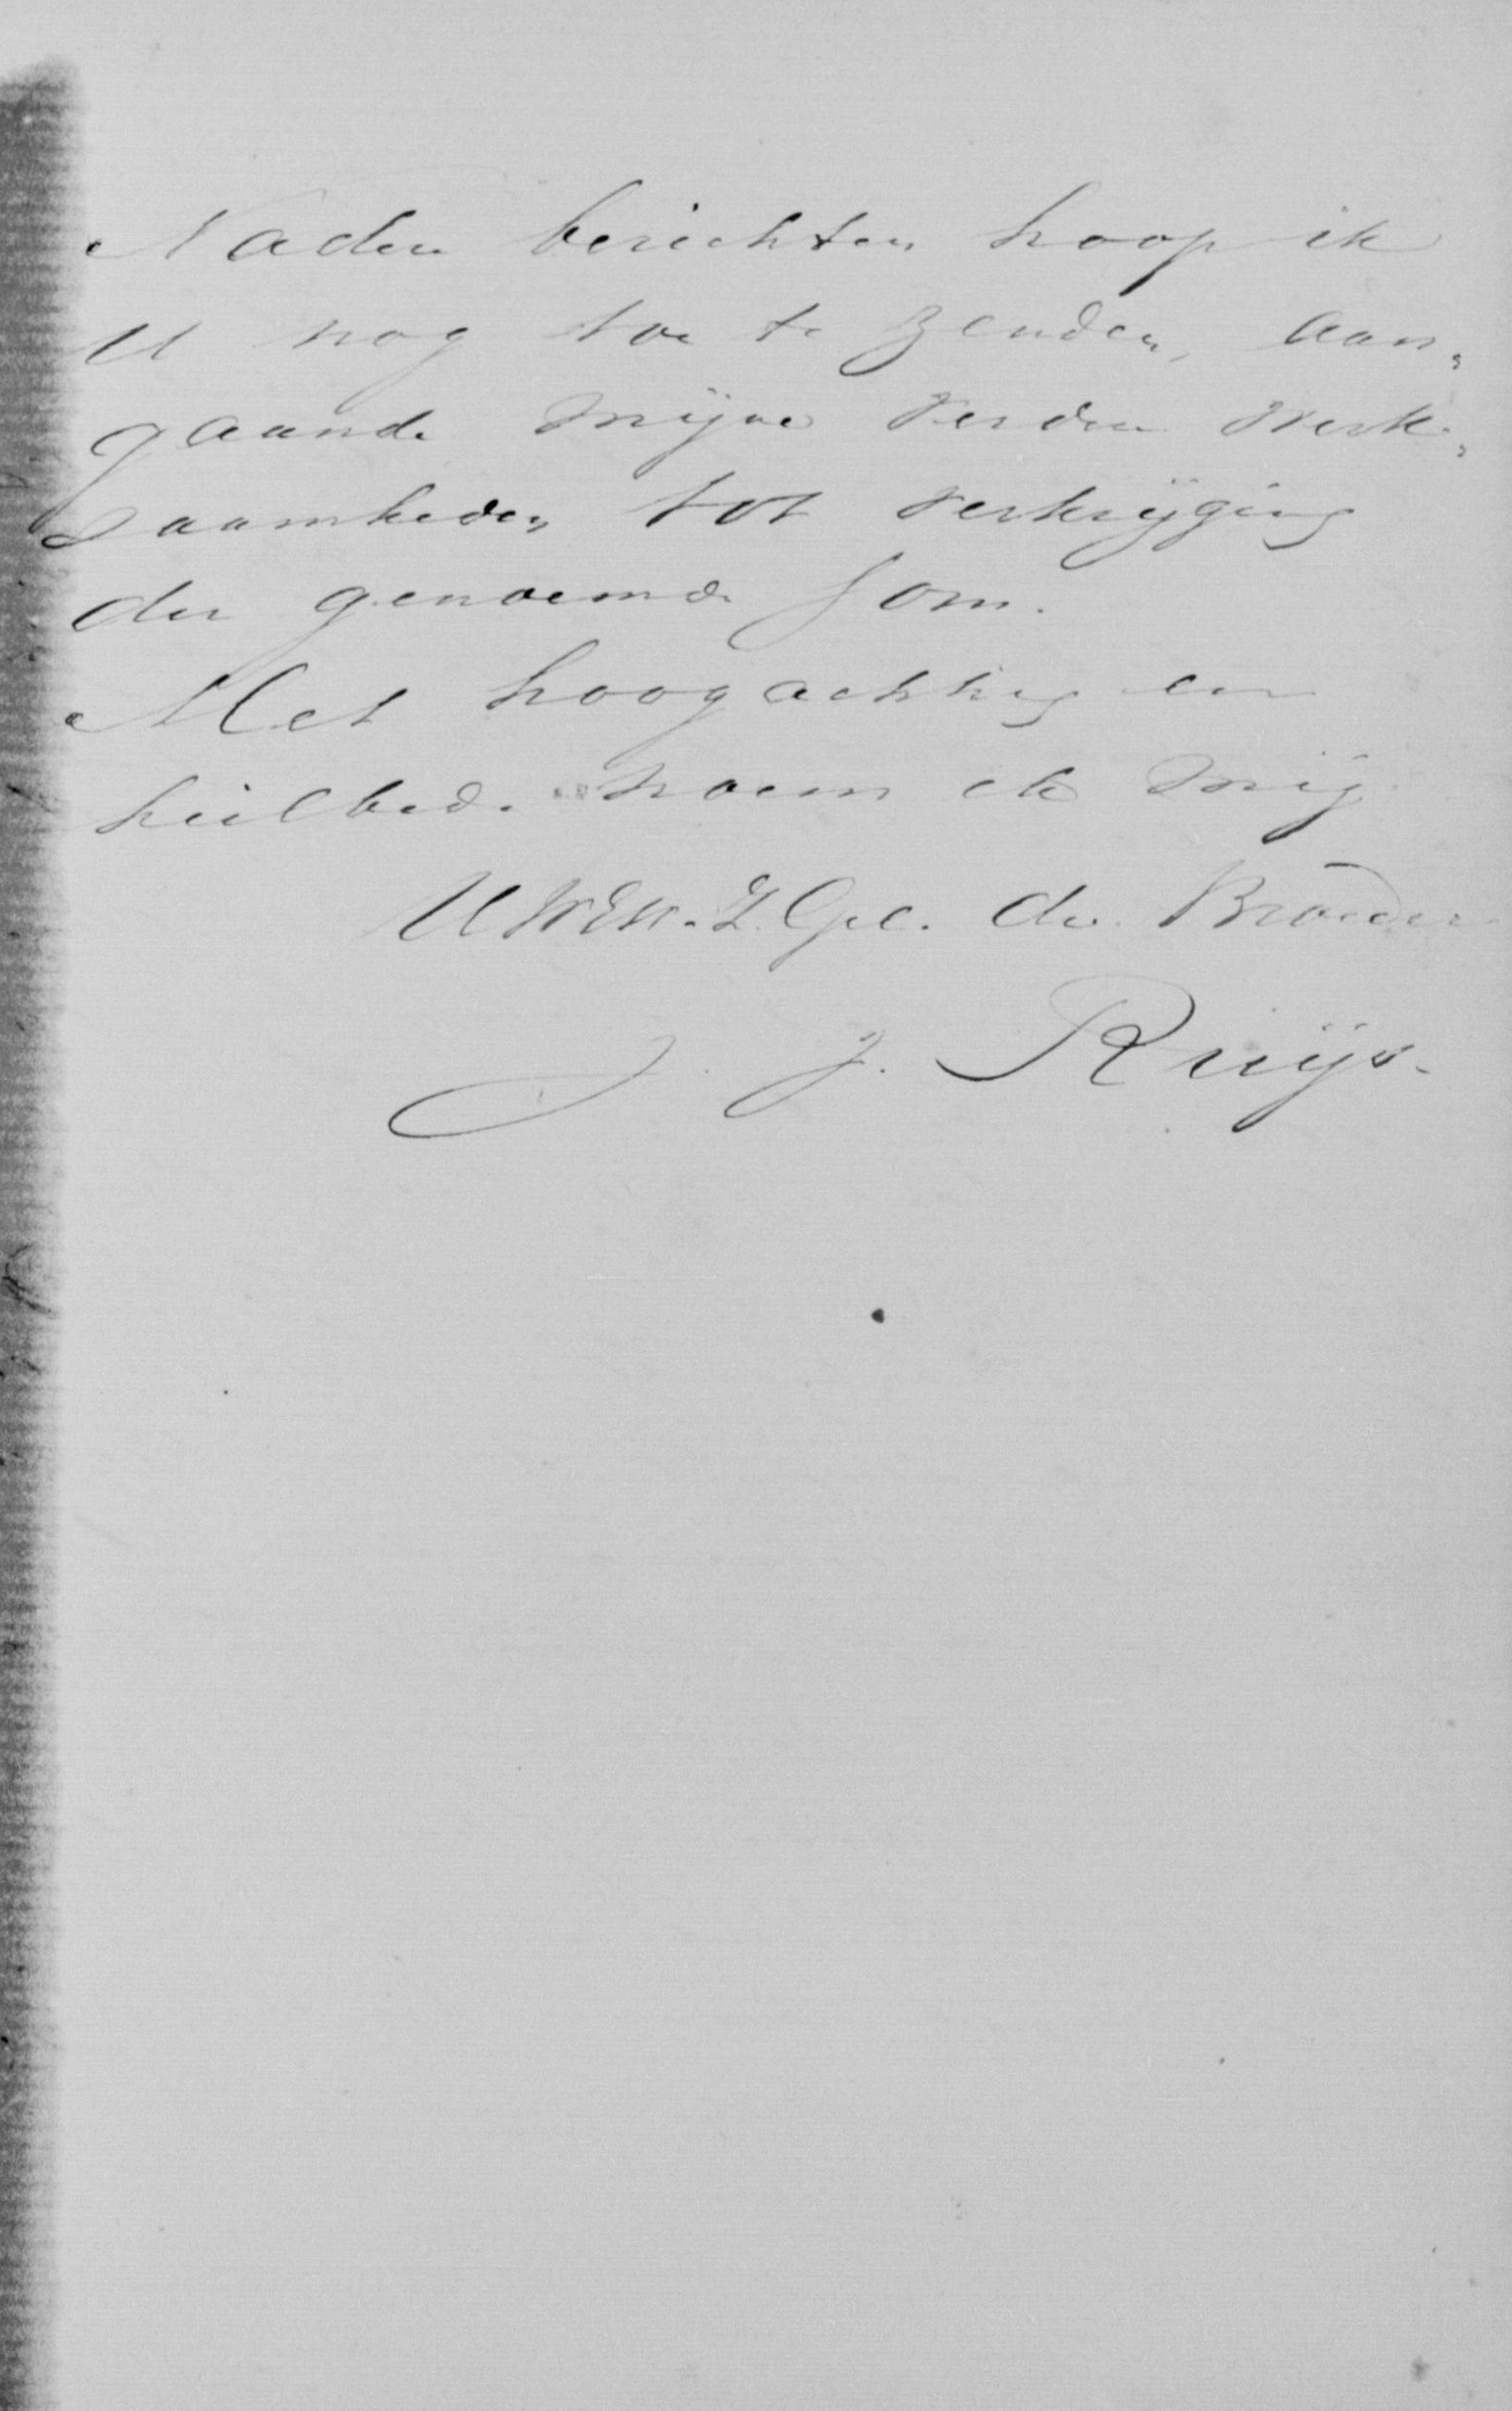 Nadere berichten hoop ik
U nog toe te zenden, aan„
gaande mijne verdere werk„
zaamheden tot verkrijging
der genoemde som.
Met hoogachting en
heilbede noem ik mij
UWEW. Z. Gel. dw. Broeder
J. J. Ruijs.